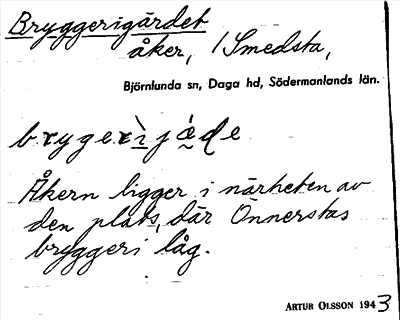 Bryggerigärdet
åker, / Smedsta,
Björnlunda sn, Daga hd, Södermanlands län.
Åkern ligger i närheten av
den plats, där Önnerstas
bryggeri låg.
ARTUR OLSSON 1943